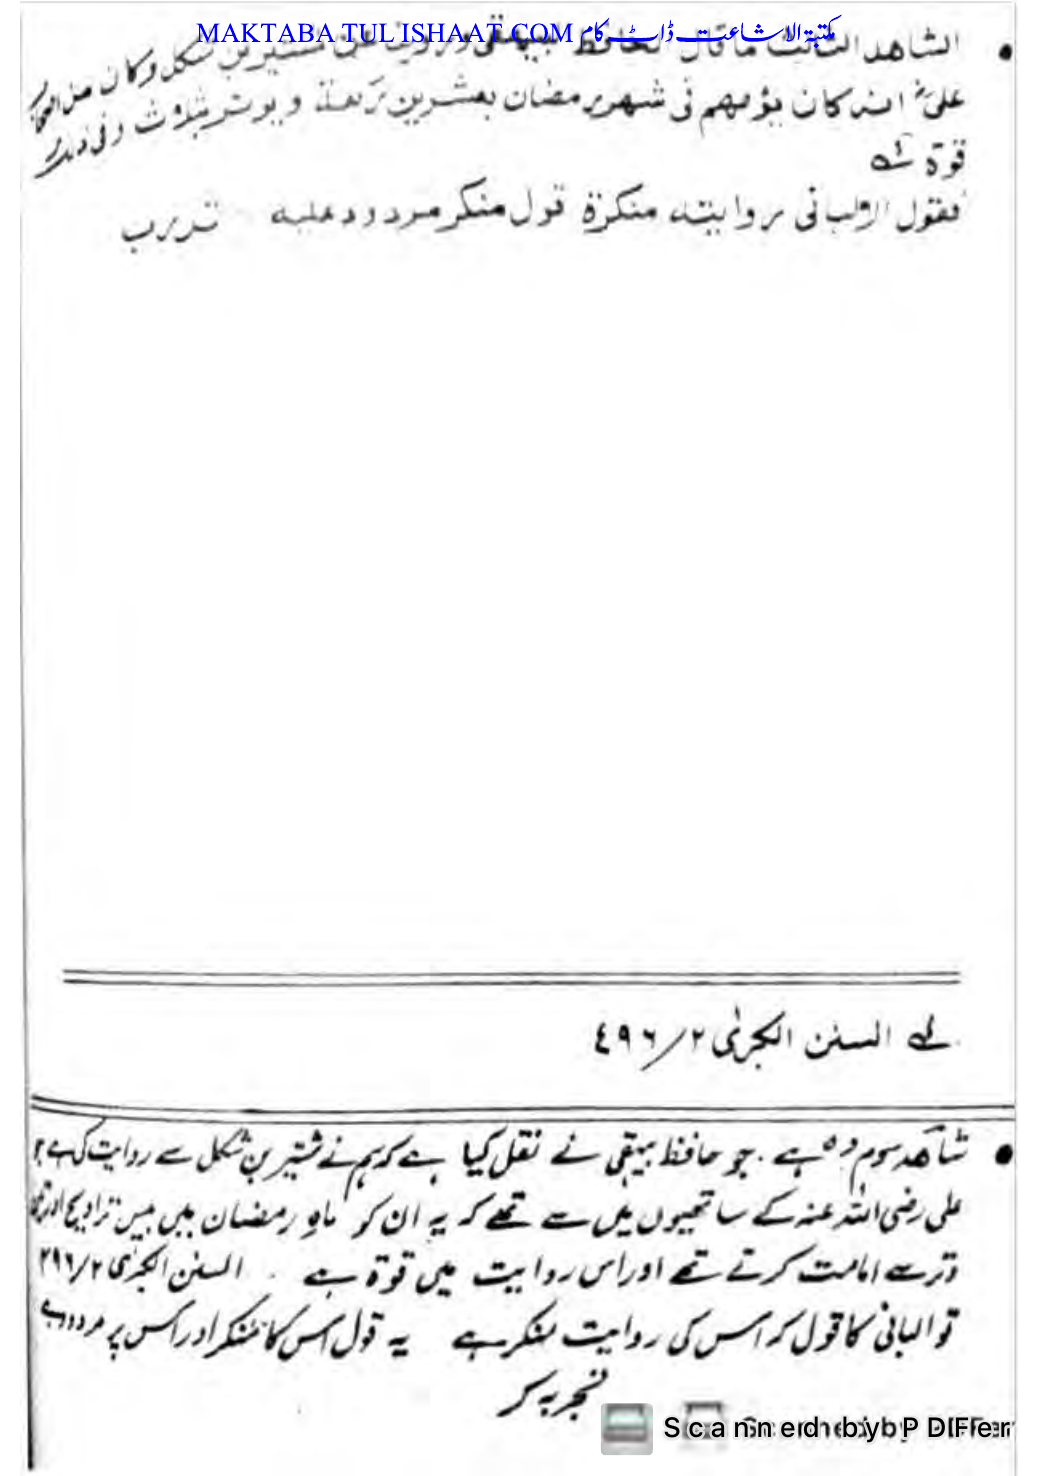 MAKTABA TUL ISHAAT.COM مکتبۃ الاشاعت ڈاٹ کام
الشاهد الثالث ما قال الحافظ البيهقي وروينا عن شتير بن شكل وكان من
علیؓ انہ کان یؤمهم فی شهر رمضان بعشرين ركعة و يوتر بثلاث وفی ذلك
قوة لہ
فقول الالبانی روايته منكرة قول منكر مردود عليه تدرب
لہ السنن الکبریٰ ٢/٤٩٦
شاھد سوم وہ ہے جو حافظ بیہقی نے نقل کیا ہے کہ ہم نے شتیر بن شکل سے روایت کی ہے
علی رضی اللہ عنہ کے ساتھیوں میں سے تھے کہ یہ ان کو ماہِ رمضان میں بیس تراویح اور
وتر سے امامت کرتے تھے اور اس روایت میں قوۃ ہے . السنن الکبریٰ ۲/۲۹۶
تو البانی کا قول کہ اس کی روایت منکر ہے یہ قول اس کا منکر اور اس پر مردود ہے
تجربہ کر
Scanned by PDFer